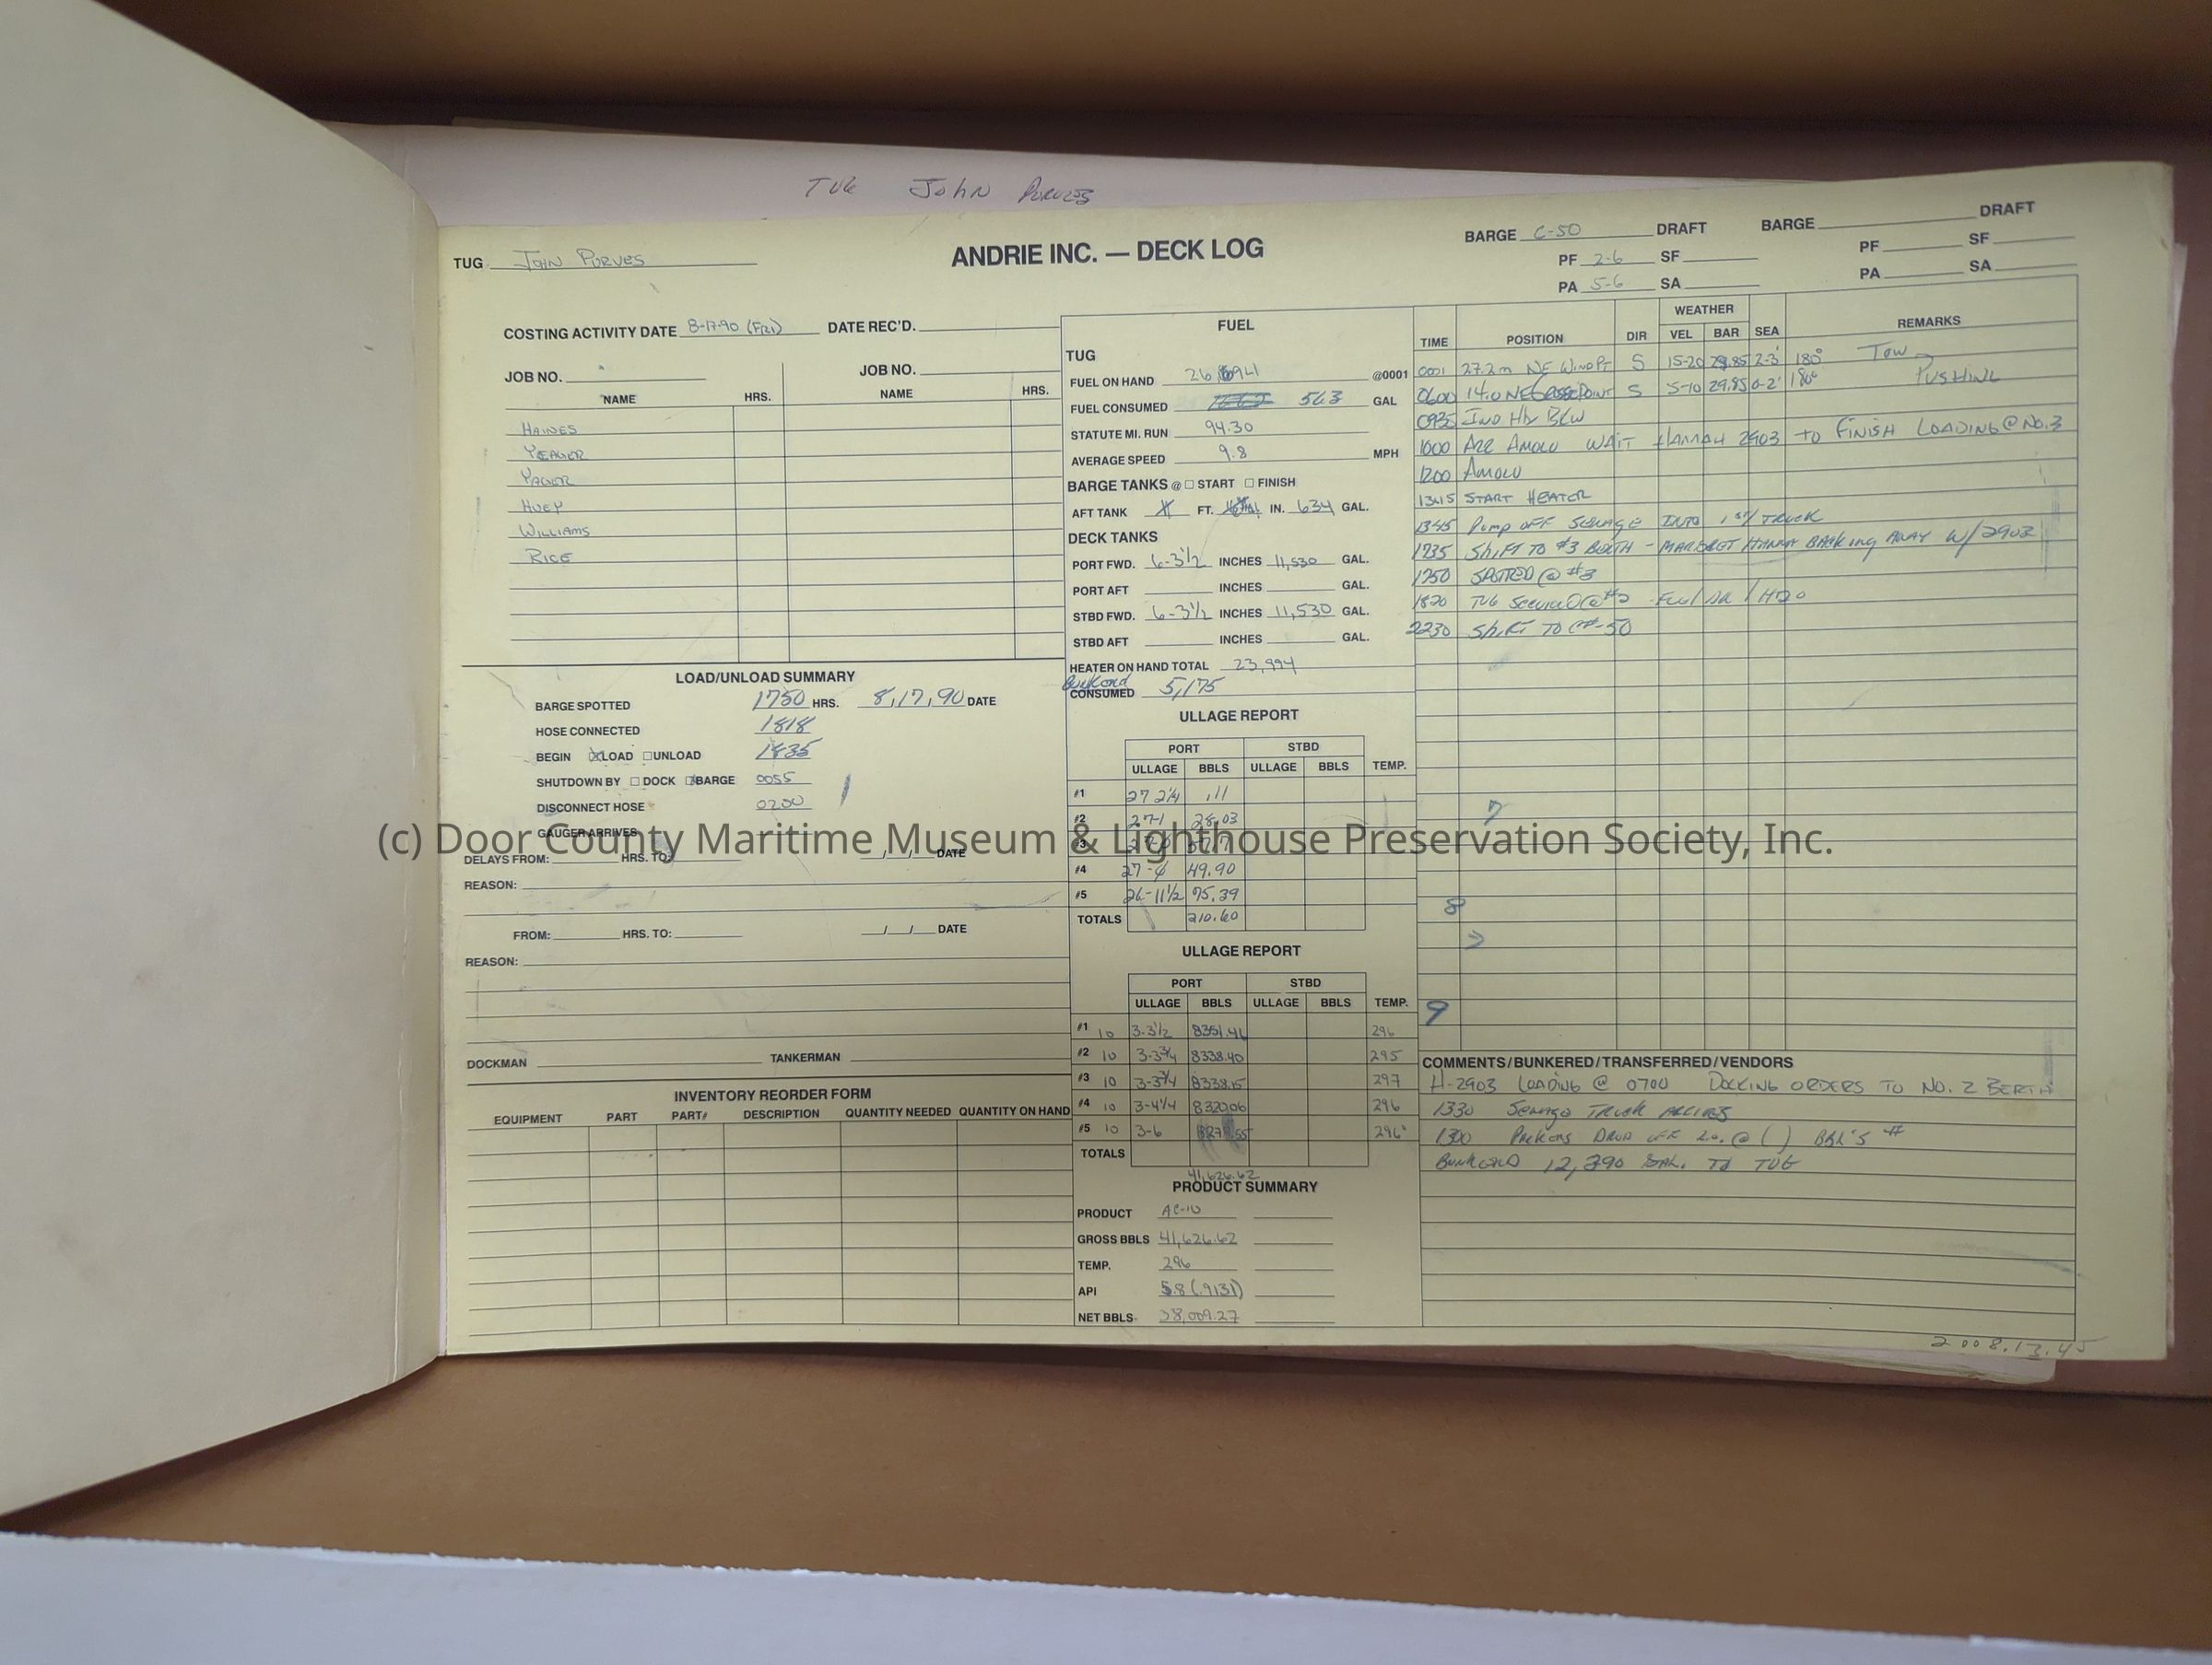 TUG John PURVES
TUG JOHN PURVES
ANDRIE INC. — DECK LOG
BARGE C-50 DRAFT BARGE DRAFT
PF 2-6 SF PF SF
PA 5-6 SA PA SA
COSTING ACTIVITY DATE 8-17-90 (FRI) DATE REC'D.
JOB NO. JOB NO.
NAME HRS. NAME HRS.
HAINES
YEAGER
YAGER
HUEY
WILLIAMS
RICE
LOAD/UNLOAD SUMMARY
BARGE SPOTTED 1750 HRS. 8,17,90 DATE
HOSE CONNECTED 1818
BEGIN LOAD UNLOAD 1835
SHUTDOWN BY DOCK BARGE 0055
DISCONNECT HOSE 0200
GAUGER ARRIVES
DELAYS FROM: HRS. TO: / / DATE
REASON:
FROM: HRS. TO: / / DATE
REASON:
DOCKMAN TANKERMAN
INVENTORY REORDER FORM
EQUIPMENT PART PART# DESCRIPTION QUANTITY NEEDED QUANTITY ON HAND
FUEL
TUG
FUEL ON HAND @0001
FUEL CONSUMED 563 GAL
STATUTE MI. RUN 94.30
AVERAGE SPEED 9.8 MPH
BARGE TANKS @ START FINISH
AFT TANK FT. IN. 634 GAL.
DECK TANKS
PORT FWD. 6-3½ INCHES 11,530 GAL.
PORT AFT INCHES GAL.
STBD FWD. 6-3½ INCHES 11,530 GAL.
STBD AFT INCHES GAL.
HEATER ON HAND TOTAL 23,994
Bunkered
CONSUMED 5,175
ULLAGE REPORT
PORT STBD
ULLAGE BBLS ULLAGE BBLS TEMP.
#1 27 2¼ .11
#2 27-1 28.03
#3
#4 49.90
#5 26-11½ 75.39
TOTALS 210.60
ULLAGE REPORT
PORT STBD
ULLAGE BBLS ULLAGE BBLS TEMP.
#1 10 3-3½ 8351.46 296
#2 10 3-3¾ 8338.40 295
#3 10 3-3¾ 8338.15 297
#4 10 3-4¼ 8320.06 296
#5 10 3-6 296°
TOTALS
41,626.62
PRODUCT SUMMARY
PRODUCT AC-10
GROSS BBLS 41,626.62
TEMP. 296
API 5.8 (.9131)
NET BBLS. 38,009.27
WEATHER
TIME POSITION DIR VEL BAR SEA REMARKS
0001 27.2m NE WIND PT S 15-20 29.85 2-3' 180° TOW
0600 14.0 NE POINT S 5-10 29.85 0-2' 180° PUSHING
0935 IND Hbr BKW
1000 ARR AMOCO WAIT HANNAH 2903 TO FINISH LOADING @ NO.3
1200 AMOCO
1345 START HEATER
1345 Pump OFF SEWAGE INTO 1ST TRUCK
1735 Shift TO #3 BERTH - MARGRET HANNA BACKING AWAY W/ 2903
1750 SPOTTED @ #3
1820 TUG
2230 Shift TO
7
8
9
COMMENTS/BUNKERED/TRANSFERRED/VENDORS
H-2903 LOADING @ 0700 DOCKING ORDERS TO NO. 2 BERTH
1330 Sewage TRUCK ARRIVES
1300 DROP OFF
BUNKERED 12,390 GAL. TO TUG
2008.13.45
(c) Door County Maritime Museum & Lighthouse Preservation Society, Inc.